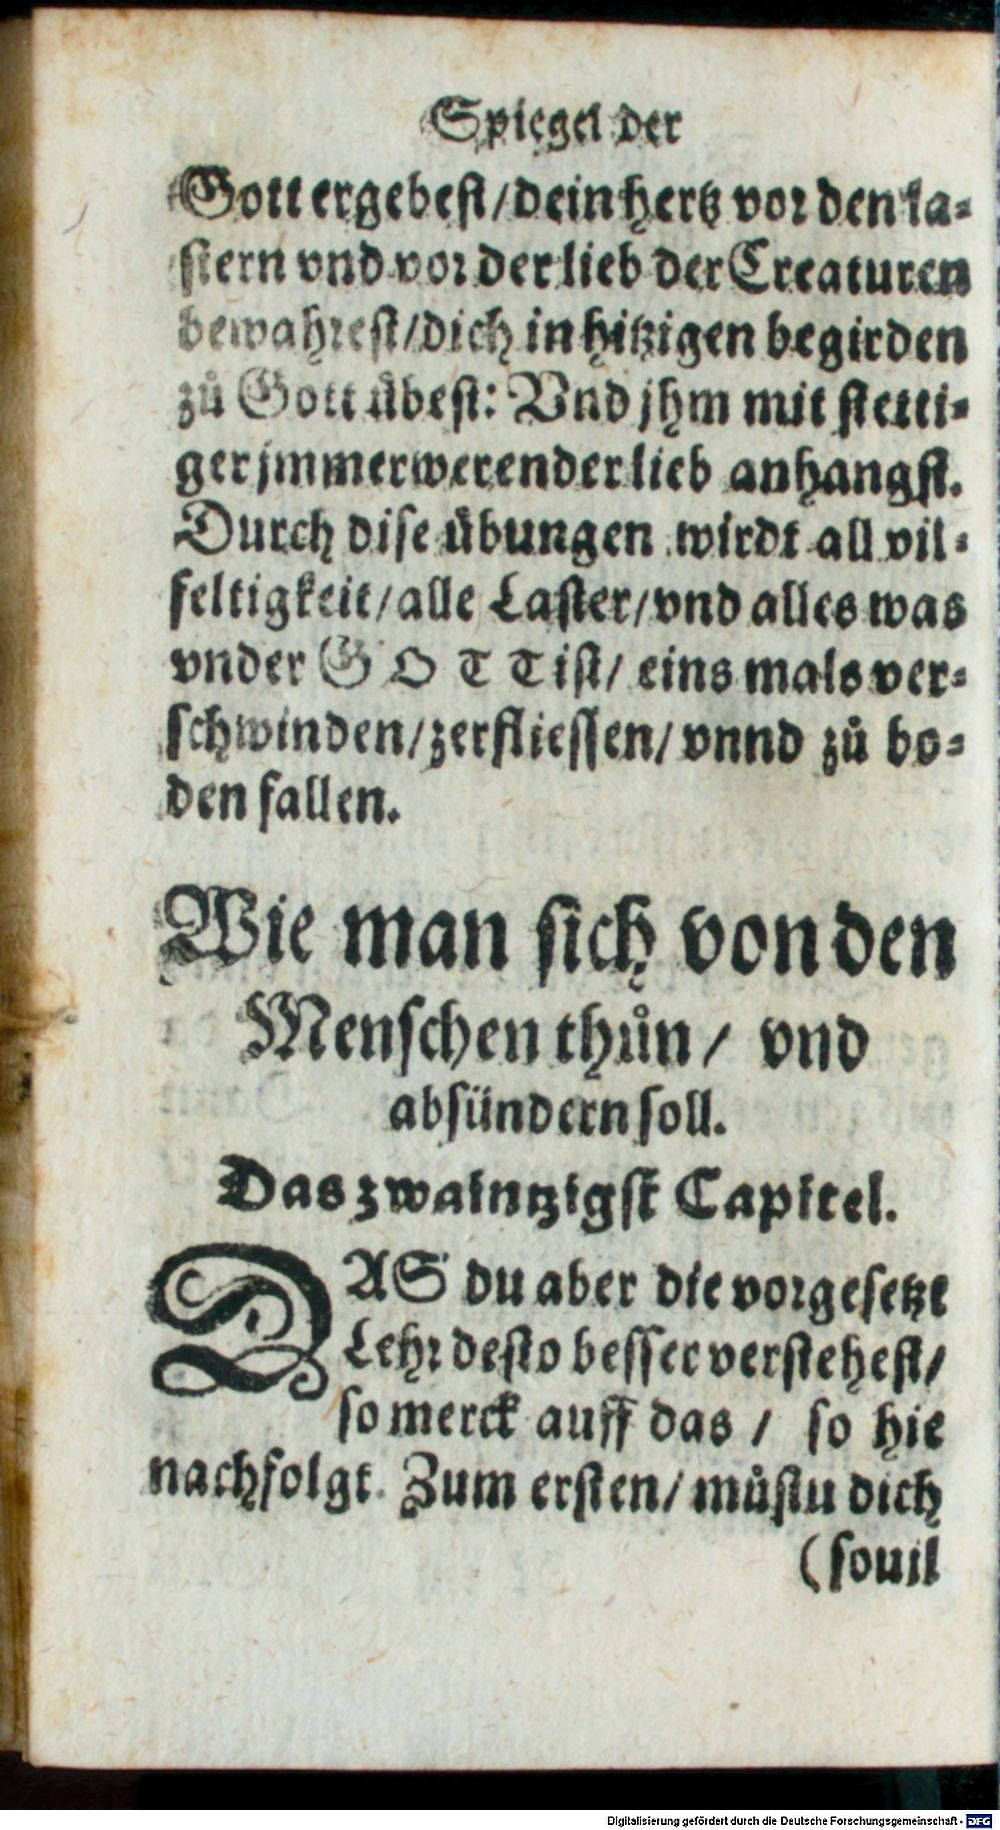 Spiegel der
Gott ergebest/dein hertz vor den la-
stern vnd vor der lieb der Creaturen
bewahrest/dich in hitzigen begirden
zů Gott übest: Vnd jhm mit stetti-
ger jmmerwerender lieb anhangst.
Durch dise übungen wirdt all vil-
feltigkeit/alle Laster/vnd alles was
vnder GOTT ist/ eins mals ver-
schwinden/zerfliessen/vnnd zů bo-
den fallen.
Wie man sich von den
Menschen thůn/ vnd
absündern soll.
Das zwaintzigst Capitel.
DAS du aber die vorgesetzt
Lehr desto besser verstehest/
so merck auff das / so hie
nachfolgt. Zum ersten/můstu dich
(souil
Digitalisierung gefördert durch die Deutsche Forschungsgemeinschaft - DFG